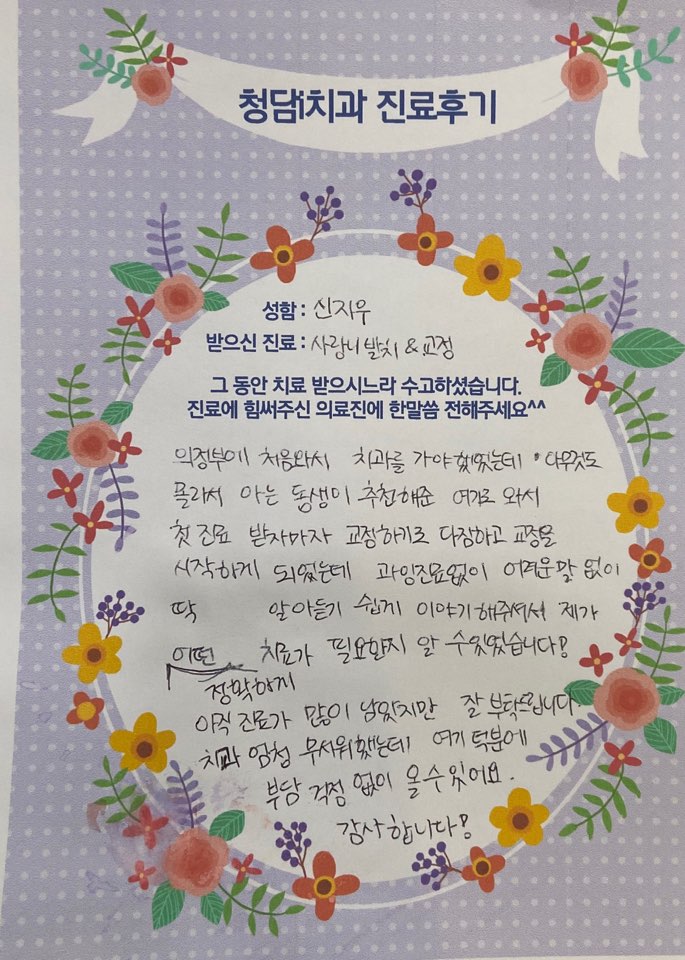 청담i치과 진료후기
성함 : 신지우
받으신 진료 : 사랑니 발치 & 교정
그 동안 치료 받으시느라 수고하셨습니다.
진료에 힘써주신 의료진에 한말씀 전해주세요^^
의정부에 처음와서 치과를 가야했었는데 아무것도
몰라서 아는 동생이 추천해준 여기로 와서
첫 진료 받자마자 교정하기로 다짐하고 교정을
시작하게 되었는데 과잉진료없이 어려운말 없이
딱 알아듣기 쉽게 이야기해주셔서 제가
어떤 치료가 필요한지 알 수있었습니다!
정확하게
아직 진료가 많이 남았지만 잘 부탁드립니다.
치과 엄청 무서워했는데 여기 덕분에
부담 걱정 없이 올수있어요.
감사합니다!